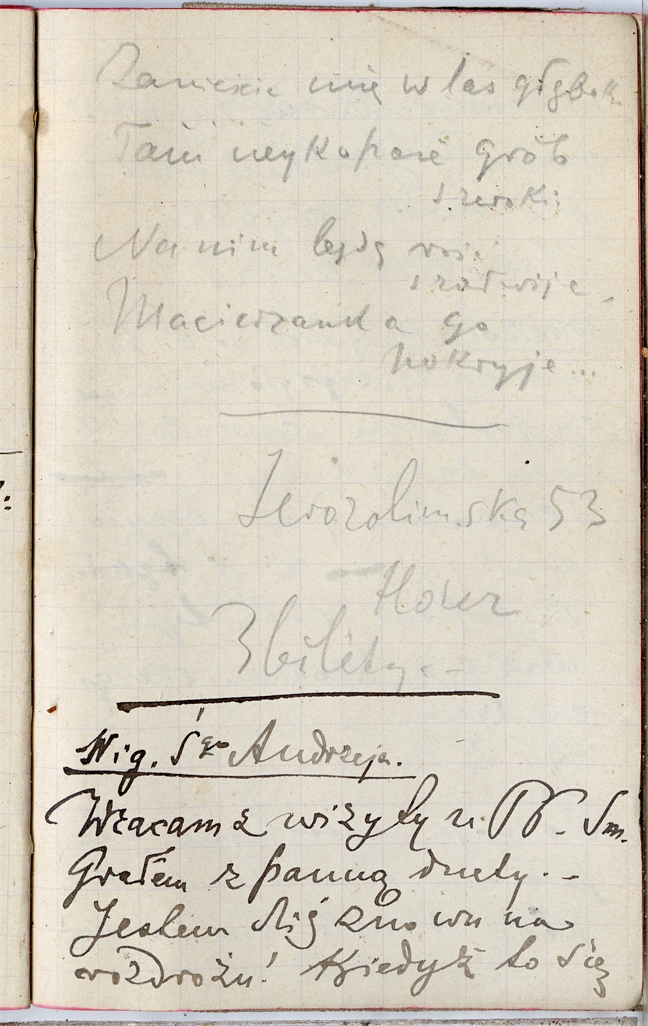 Zanieście mię w las głęboki
Tam wykopcie grób
szeroki
Na nim będą róż
i
Macierzanka go
pokryje...
Jerozolimska 53
3 bilety..
Wig. Śgo Andrzeja.
Wracam z wizyty u PP. Sm.
Grałem z panną duety.-
Jestem dziś znowu na
rozdrożu! Kiedyż to się